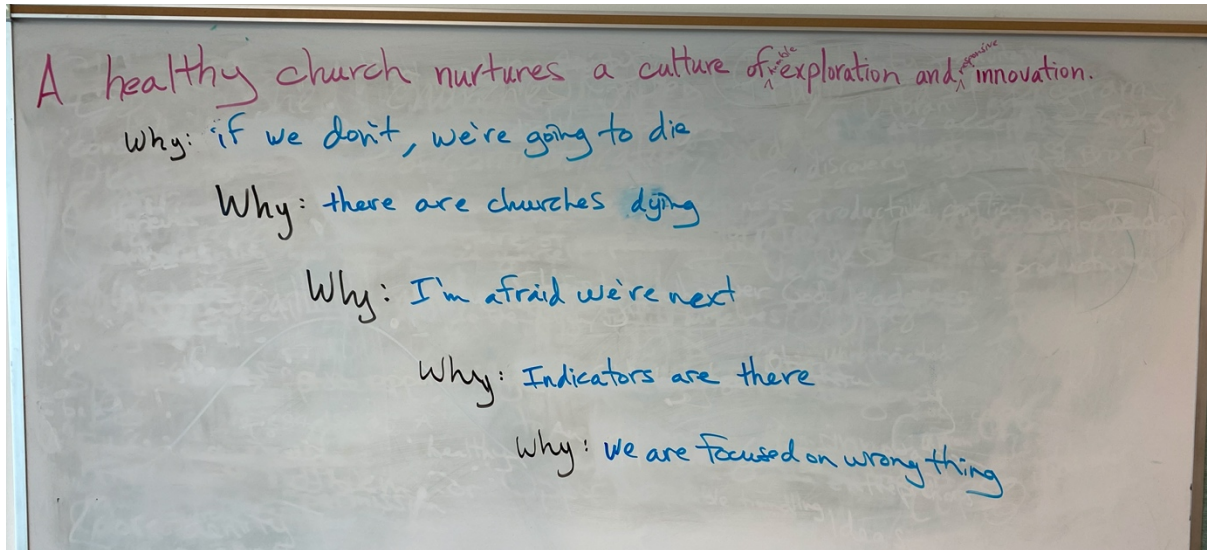 A healthy church nurtures a culture of exploration and innovation.
Why: if we don't, we're going to die
Why: there are churches dying
Why: I'm afraid we're next
Why: Indicators are there
Why: we are focused on wrong thing